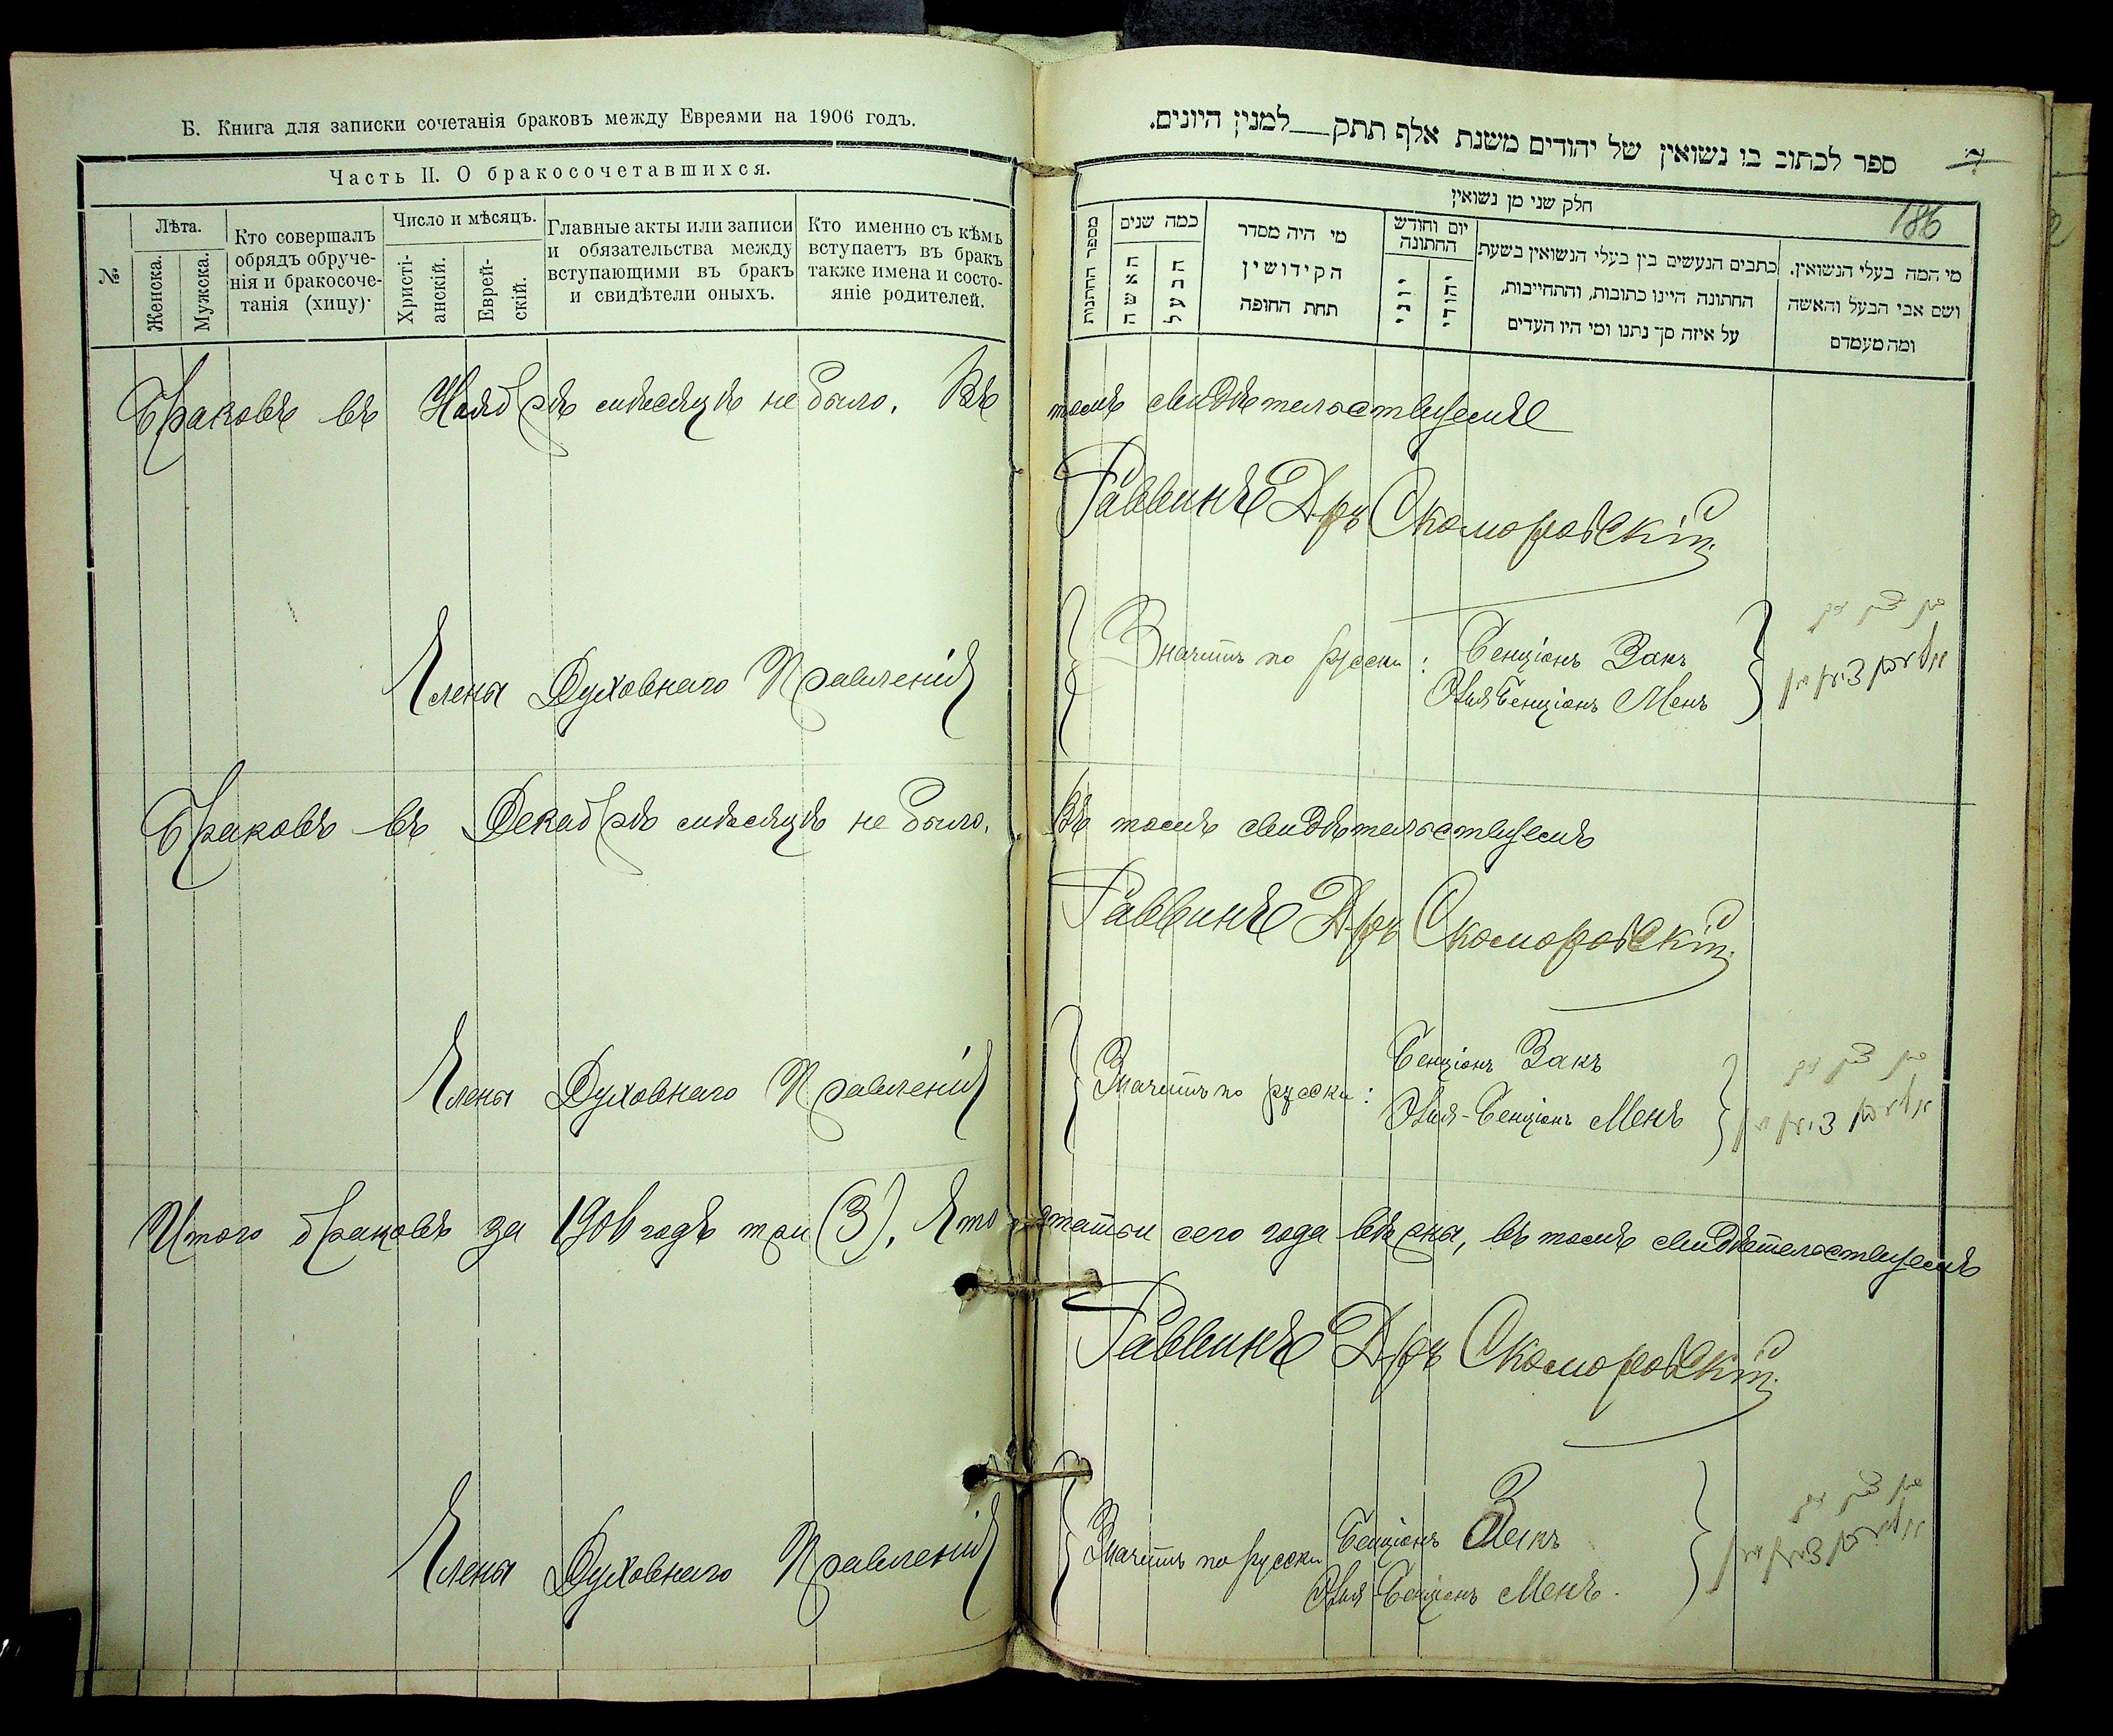 Б. Книга для записки сочетанія браковъ между Евреями на 1906 годъ.
Часть II. О бракосочетавшихся.
№
Лѣта.
Женска.
Мужска.
Кто совершалъ
обрядъ обруче-
нія и бракосоче-
танія (хипу)·
Число и мѣсяцъ.
Христі-
анскій.
Еврей-
скій.
Главные акты или записи
и обязательства между
вступающими въ бракъ
и свидѣтели оныхъ.
Кто именно съ кѣмъ
вступаетъ въ бракъ
также имена и состо-
яніе родителей.
ספר לכתוב בו נשואין של יהודים משנת אלף תתק__למנין היונים.
186
חלק שני מן נשואין
מספר החתונות
כמה שנים
האשה
הבעל
מי היה מסדר
הקידושין
תחת החופה
יום וחודש
החתונה
יוני
יהודי
כתבים הנעשים בין בעלי הנשואין בשעת
החתונה היינו כתובות, והתחייבות,
על איזה סך נתנו ומי היו העדים
מי המה בעלי הנשואין.
ושם אבי הבעל והאשה
ומה מעמדם
Браковъ въ Ноябрѣ мѣсяцѣ не было. Въ томъ свидѣтельствуемъ
Раввинъ Д-ръ Скоморовскій
Члены Духовнаго Правленія
Значитъ по русски: Бенціонъ Закъ
Бенціонъ Менъ
Браковъ въ Декабрѣ мѣсяцѣ не было. Въ томъ свидѣтельствуемъ
Раввинъ Д-ръ Скоморовскій
Члены Духовнаго Правленія
Значитъ по русски: Бенціонъ Закъ
Бенціонъ Менъ
Итого браковъ за 1906 годъ три (3). Что статьи сего года вѣрны, въ томъ свидѣтельствуемъ
Раввинъ Д-ръ Скоморовскій
Члены Духовнаго Правленія
Значитъ по русски Бенціонъ Закъ
Бенціонъ Менъ.